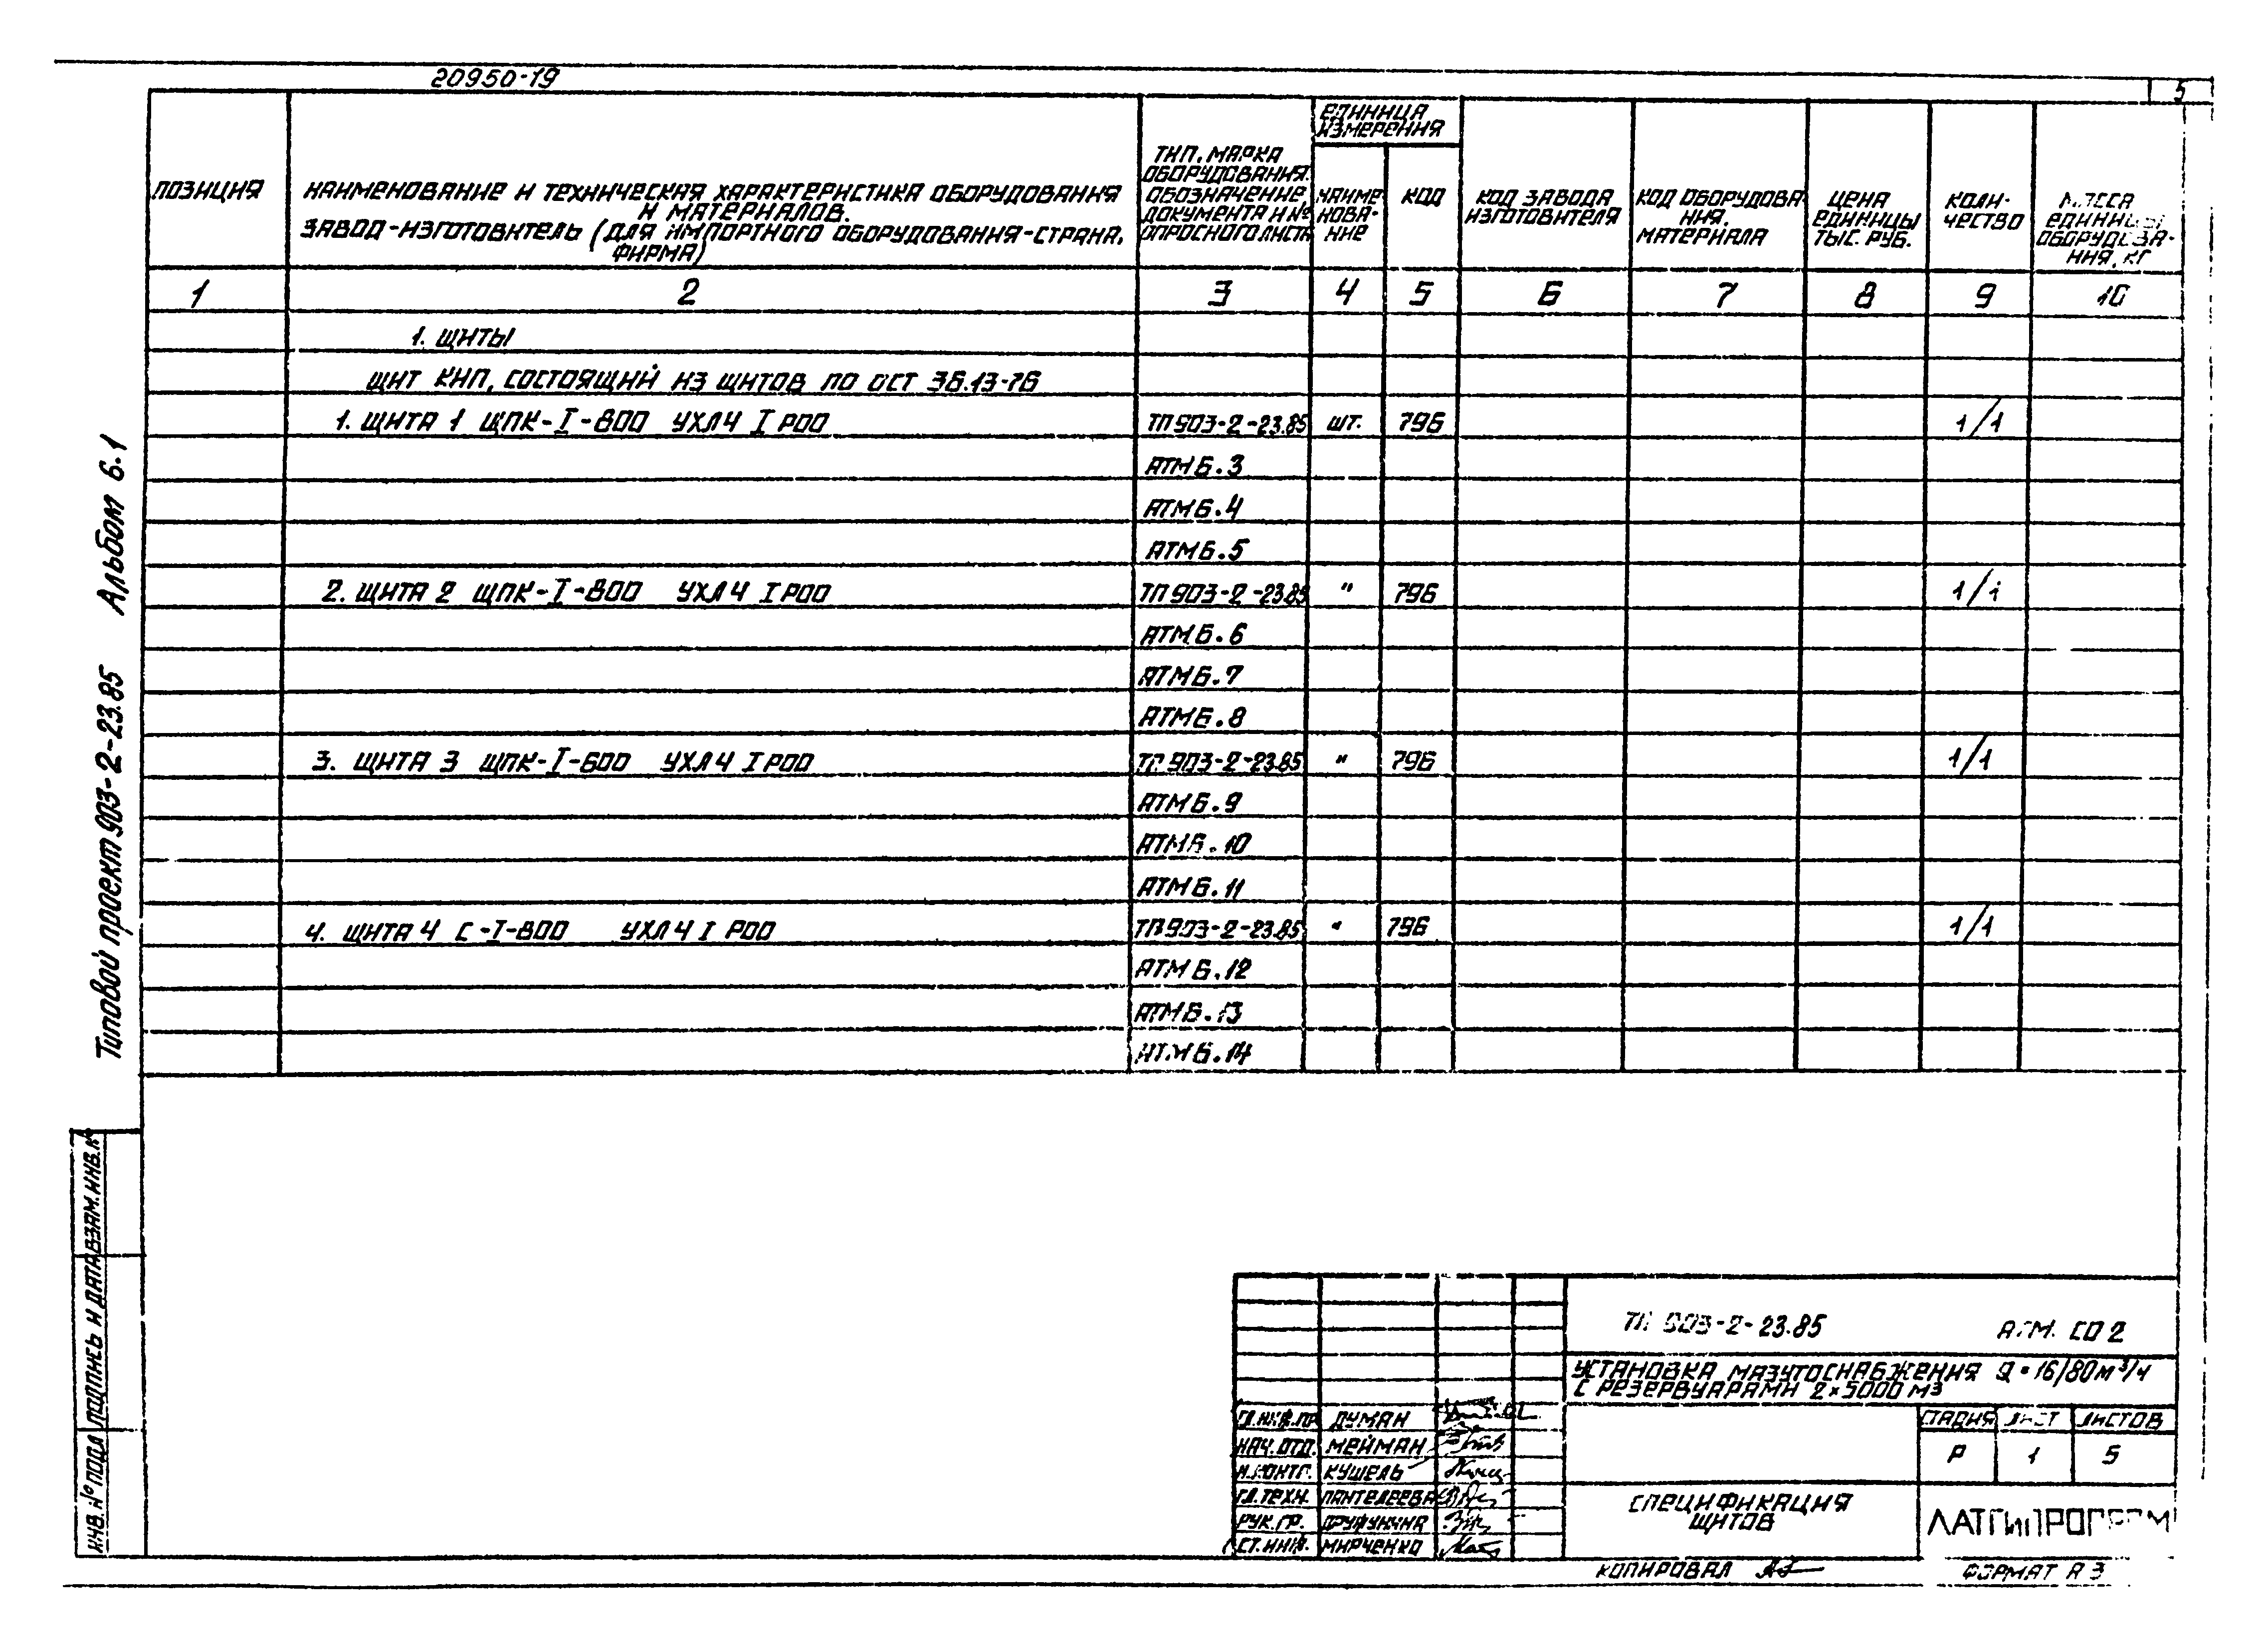 20950-19
5
ПОЗИЦИЯ
НАИМЕНОВАНИЕ И ТЕХНИЧЕСКАЯ ХАРАКТЕРИСТИКА ОБОРУДОВАНИЯ
И МАТЕРИАЛОВ.
ЗАВОД-ИЗГОТОВИТЕЛЬ (ДЛЯ ИМПОРТНОГО ОБОРУДОВАНИЯ-СТРАНА,
ФИРМА)
ТИП, МАРКА
ОБОРУДОВАНИЯ.
ОБОЗНАЧЕНИЕ
ДОКУМЕНТА И №
ОПРОСНОГО ЛИСТА
ЕДИНИЦА
ИЗМЕРЕНИЯ
НАИМЕ
НОВА-
НИЕ
КОД
КОД ЗАВОДА
ИЗГОТОВИТЕЛЯ
КОД ОБОРУДОВА
НИЯ,
МАТЕРИАЛА
ЦЕНА
ЕДИНИЦЫ
ТЫС. РУБ.
КОЛИ-
ЧЕСТВО
МАССА
ЕДИНИЦЫ
ОБОРУДОВА-
НИЯ, КГ
1 2 3 4 5 6 7 8 9 10
1. ЩИТЫ
ЩИТ КИП, СОСТОЯЩИЙ ИЗ ЩИТОВ ПО ОСТ 36.13-76
1. ЩИТА 1 ЩПК-I-800 УХЛ4 IP00 ТП 903-2-23.85 ШТ. 796 1/1
АТМ6.3
АТМ6.4
АТМ6.5
2. ЩИТА 2 ЩПК-I-800 УХЛ4 IP00 ТП 903-2-23.85 " 796 1/1
АТМ6.6
АТМ6.7
АТМ6.8
3. ЩИТА 3 ЩПК-I-600 УХЛ4 IP00 ТП 903-2-23.85 " 796 1/1
АТМ6.9
АТМ6.10
АТМ6.11
4. ЩИТА 4 С-I-800 УХЛ4 IP00 ТП 903-2-23.85 " 796 1/1
АТМ6.12
АТМ6.13
АТМ6.14
Типовой проект 903-2-23.85 Альбом 6.1
ИНВ. № ПОДЛ ПОДПИСЬ И ДАТА ВЗАМ. ИНВ. №
ТП 903-2-23.85 АТМ. СО 2
УСТАНОВКА МАЗУТОСНАБЖЕНИЯ Q=16/80 м³/ч
С РЕЗЕРВУАРАМИ 2×5000 м³
ГЛ.ИНЖ.ПР ДУМАН
НАЧ. ОТД. МЕЙМАН
Н.КОНТР. КУШЕЛЬ
ГЛ.ТЕХН. ПАНТЕЛЕЕВА
РУК. ГР. ДРУЖИНИНА
СТ.ИНЖ. МИРЧЕНКО
СТАДИЯ ЛИСТ ЛИСТОВ
Р 1 5
СПЕЦИФИКАЦИЯ
ЩИТОВ
ЛАТГИПРОПРОМ
КОПИРОВАЛ
ФОРМАТ А3